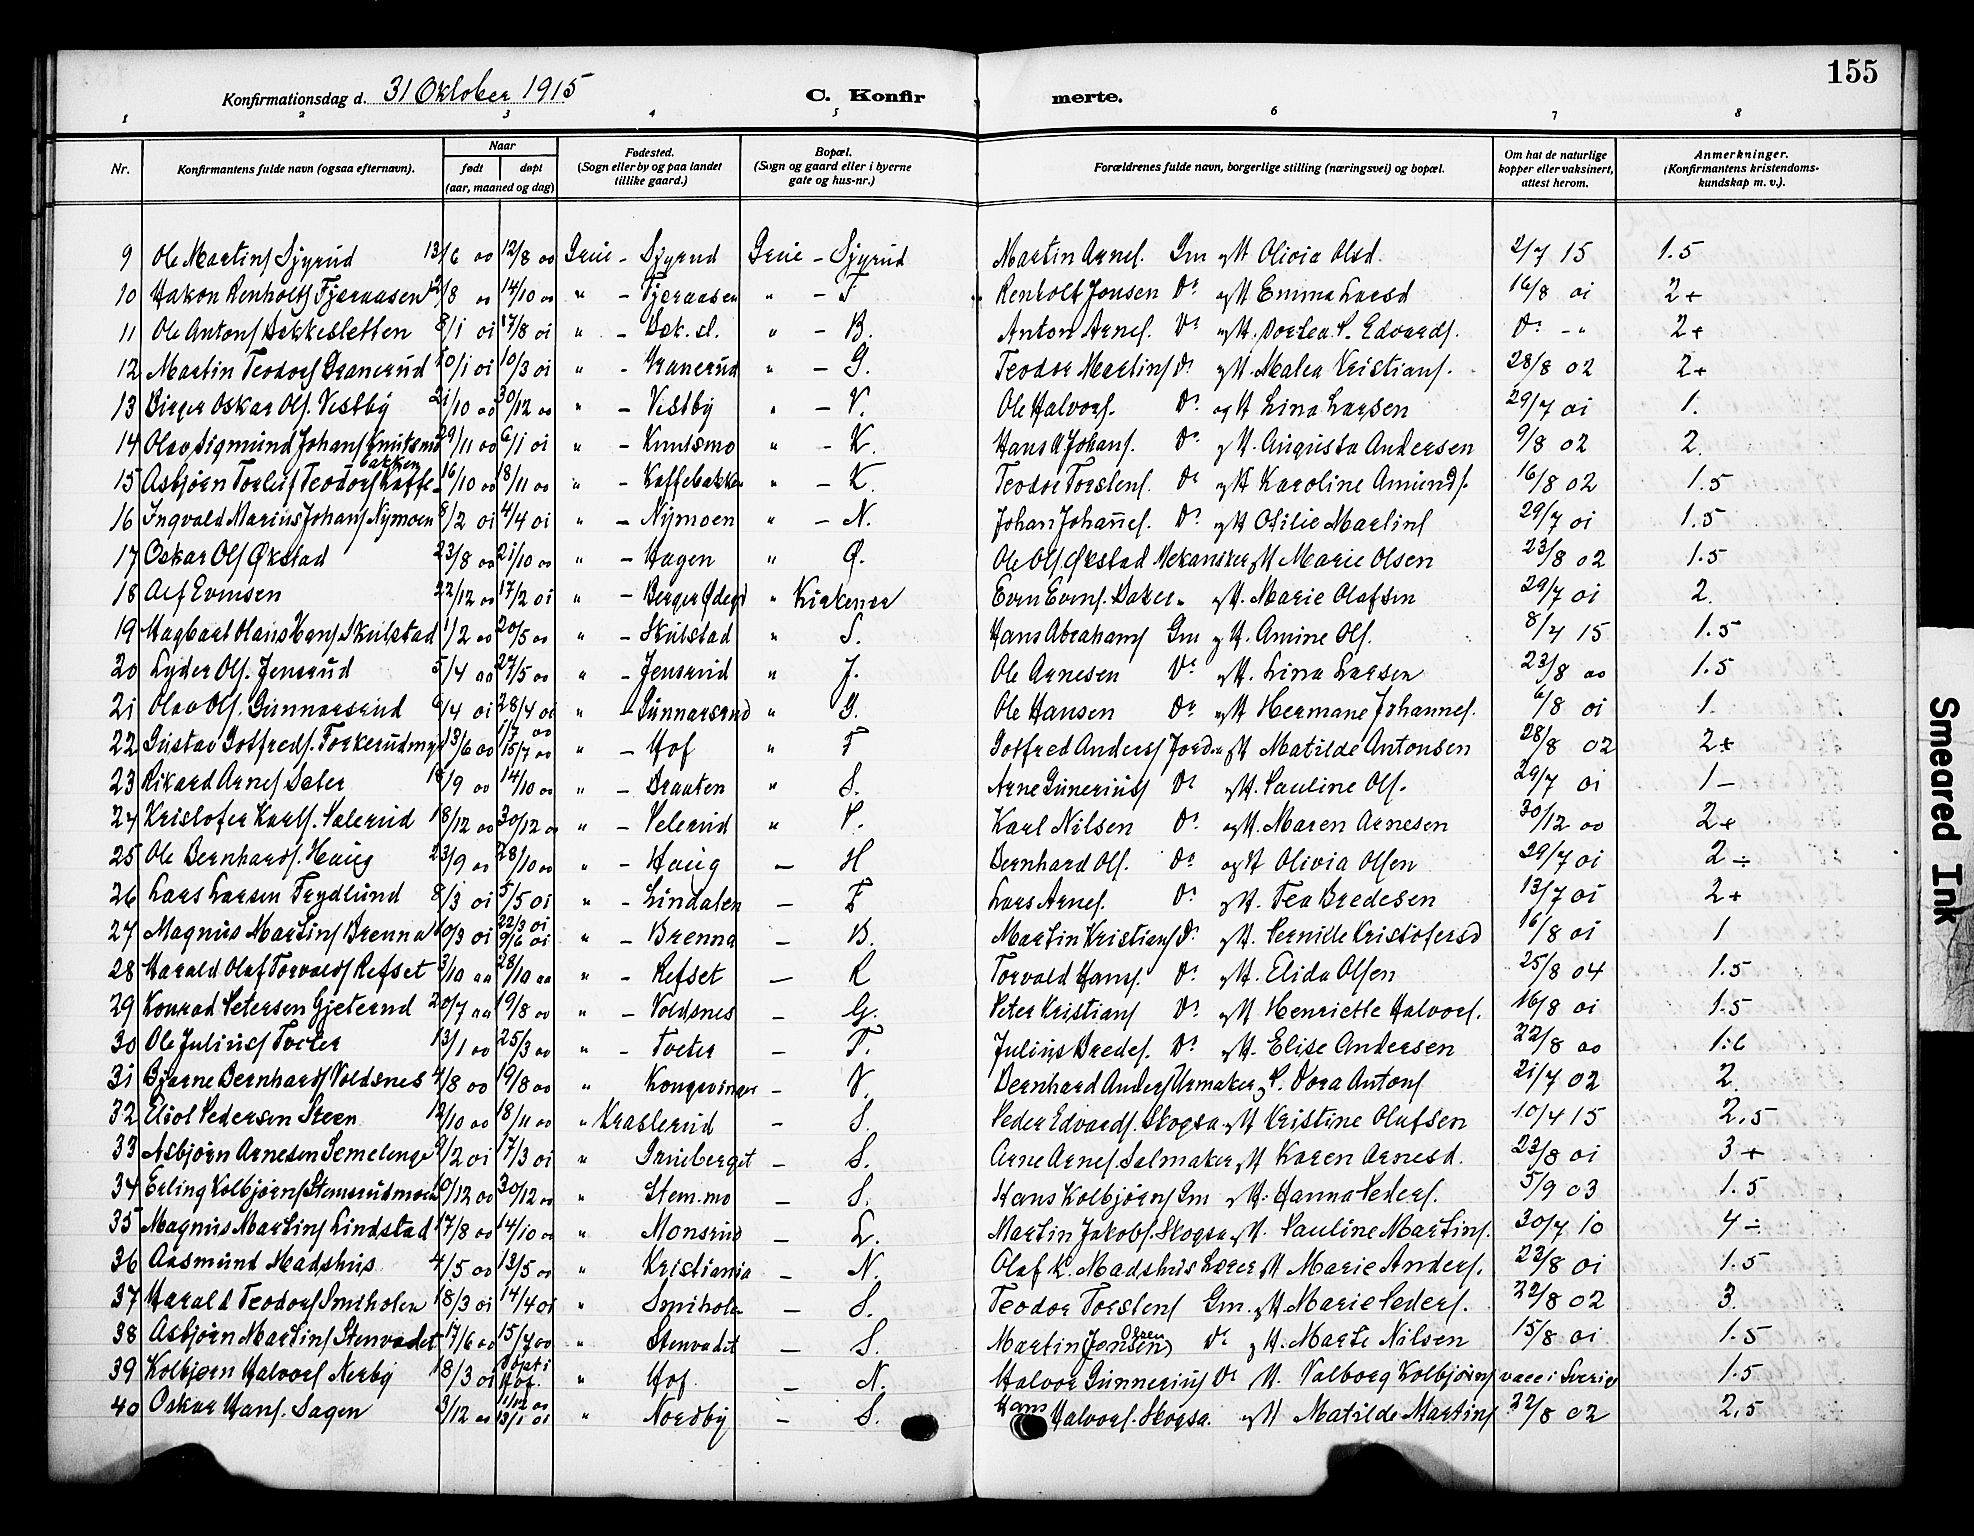 155
Konfirmationsdag d. 31 Oktober 1915 C. Konfirmerte.
1 2 3 4 5 6 7 8
Nr. Konfirmantens fulde navn (ogsaa efternavn). Naar født døpt (aar, maaned og dag) Fødested. (Sogn eller by og paa landet tillike gaard.) Bopæl. (Sogn og gaard eller i byerne gate og hus-nr.) Forældrenes fulde navn, borgerlige stilling (næringsvei) og bopæl. Om hat de naturlige kopper eller vaksinert, attest herom. Anmerkninger. (Konfirmantens kristendomskundskap m. v.).
9 Ole Martins Sjyrud 13/6 00 12/8 00 Grue - Sjyrud Grue - Sjyrud Martin Arnes. Gm og H Olivia Olsd. 2/7 15 1.5
10 Hakon Renholts Fjeraasen /8 00 14/10 00 " - Fjeraasen " - F Renholt Jonsen Do og H Emma Larsd 16/8 01 2+
11 Ole Antons Bekkesletten 8/1 01 17/8 01 " - Bek. sl. " - B. Anton Arnes. Do og H. Dortea P. Edvards. Do - " 2+
12 Martin Teodors Granerud 20/1 01 10/3 01 " - Granerud " - G. Teodor Martins Do og H. Malea Kristians. 28/8 02 2+
13 Birger Oskar Ols. Vestby 21/10 00 30/12 00 " - Vestby " - V. Ole Halvors. Do og H Lina Larsen 29/7 01 1.
14 Olav Sigmund Johans Knutsmo 29/11 00 6/1 01 " - Knutsmo " - K. Hans A Johans. Do og H. Augusta Andersen 9/8 02 2.
15 Asbjørn Torleif Teodors Kaffebakken 16/10 00 18/11 00 " - Kaffebakken " - K. Teodor Torstens. Do og H Karoline Amunds. 16/8 02 1.5
16 Ingvald Marius Johans Nymoen 8/2 01 4/4 01 " - Nymoen " - N. Johan Johannes. Do og H Otilie Martins 29/7 01 1.5
17 Oskar Ols Økstad 23/8 00 21/10 00 " - Hagen " Ø. Ole Ols. Økstad Mekaniker og H Marie Olsen 23/8 02 1.5
18 Alf Evensen 22/12 00 17/2 01 " - Berger Ødegd " Kirkenær Even Evens. Baker. og H. Marie Olafsen 29/7 01 2.
19 Hagbart Olaus Hans Skulstad 1/2 00 20/5 00 " - Skulstad " S. Hans Abrahams Gm og H. Amine Ols. 8/7 15 1.5
20 Lyder Ols. Jensrud 5/4 00 27/5 00 " - Jensrud " J. Ole Arnesen Do og H. Lina Larsen 23/8 00 1.5
21 Olav Ols. Gunnarsrud 6/4 01 28/4 01 " - Gunnarsrud " G. Ole Hansen Do og H Hermane Johannes. 6/8 01 1.
22 Gustav Gotfreds. Torkerudmyr 13/6 00 1/7 00 15/7 00 " - Hof " T Gotfred Anders Jordbr og H Matilde Antonsen 28/8 02 2+
23 Rikard Arnes Sater 18/9 00 14/10 00 " - Braaten " S. Arne Gunerius Do og H. Pauline Ols. 29/7 01 1 -
24 Kristofer Karls. Pelerud 18/12 00 30/12 00 " - Pelerud " P. Karl Nilsen Do og H. Maren Arnesen 30/12 00 2+
25 Ole Bernhards. Haug 23/9 00 28/10 00 " - Haug - H Bernhard Ols. Do og H Olivia Olsen 29/7 01 2 ÷
26 Lars Larsen Frydlund 8/3 01 5/5 01 " - Lindalen - F Lars Arnes. Do og H. Tea Bredesen 13/7 01 2+
27 Magnus Martins Brenna 10/3 01 22/3 01 9/6 01 " - Brenna - B. Martin Kristians Do og H. Pernille Kristofersd 16/8 01 1
28 Harald Olaf Torvalds Refset 3/10 00 28/10 00 " - Refset - R Torvald Hans. Do og H. Elida Olsen 25/8 04 1.5
29 Konrad Petersen Gjeterud 20/7 00 19/8 00 " - Voldsnes - G. Peter Kristians Do og H Henriette Halvors. 16/8 01 1.5
30 Ole Julius Tveter 13/1 00 25/3 00 " - Tveter - T. Julius Bredes. Do og H. Elise Andersen 22/8 00
31 Bjarne Bernhards Voldsnes 4/8 00 19/8 00 " Kongsvinger - V. Bernhard Anders Urmaker og P. Dora Antons 21/7 02 2.
32 Eliot Pedersen Steen 12/10 00 18/11 00 " Kraslerud - S. Peder Edvards. Skogsa. og H Kristine Olafsen 10/4 15 2.5
33 Asbjørn Arnesen Semelenge 9/2 01 17/3 01 " Grueberget - S. Arne Arnes Salmaker og H Karen Arnesd. 23/8 01 3 +
34 Erling Kolbjørns Stemsrudmoen 10/12 00 30/12 00 " Stem.mo - S. Hans Kolbjørns Gm og H. Hanna Peders. 5/9 03 1.5
35 Magnus Martins Lindstad 17/8 00 14/10 00 " Monsrud - L. Martin Jakobs. Skogsa og H. Pauline Martins. 30/7 10 4 ÷
36 Aasmund Madshus 4/5 00 13/5 00 " Kristiania - N. Olaf K. Madshus Lærer og H Marie Anders. 23/8 01 1.5
37 Harald Teodors Smiholen 18/3 01 14/4 01 " Smiholen - S. Teodor Torstens Gm. og H. Marie Peders. 22/8 02 3.
38 Asbjørn Martins Stenvadet 17/6 00 15/7 00 " Stenvadet - S. Martin Jonsen Do og H. Marte Nilsen 15/8 01 1.5
39 Kolbjørn Halvors Nerby 18/3 01 Døpt i Hof. " Hof. - N. Halvor Gunnerius Do H. Valborg Kolbjørns vacc i Sverig 1.5
40 Oskar Hans. Sagen 3/12 00 11/12 00 13/1 01 " Nordby - S. Hans Halvors. Skogsa. og H Matilde Martins 22/8 02 2.5
Smeared Ink